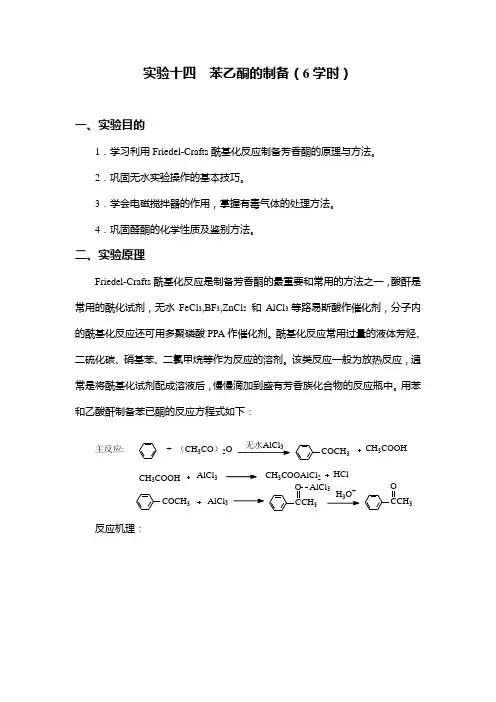 实验十四　苯乙酮的制备（6学时）
一、实验目的
1．学习利用Friedel-Crafts酰基化反应制备芳香酮的原理与方法。
2．巩固无水实验操作的基本技巧。
3．学会电磁搅拌器的作用，掌握有毒气体的处理方法。
4．巩固醛酮的化学性质及鉴别方法。
二、实验原理
Friedel-Crafts酰基化反应是制备芳香酮的最重要和常用的方法之一，酸酐是
常用的酰化试剂，无水 FeCl₃,BF₃,ZnCl₂ 和 AlCl₃等路易斯酸作催化剂，分子内
的酰基化反应还可用多聚磷酸PPA作催化剂。酰基化反应常用过量的液体芳烃、
二硫化碳、硝基苯、二氯甲烷等作为反应的溶剂。该类反应一般为放热反应，通
常是将酰基化试剂配成溶液后，慢慢滴加到盛有芳香族化合物的反应瓶中。用苯
和乙酸酐制备苯已酮的反应方程式如下：
主反应: + （CH₃CO）₂O 无水AlCl₃ COCH₃ + CH₃COOH
CH₃COOH + AlCl₃ CH₃COOAlCl₂ + HCl
COCH₃ + AlCl₃ O--AlCl₃ CCH₃ H₃O⁺ O CCH₃
反应机理：